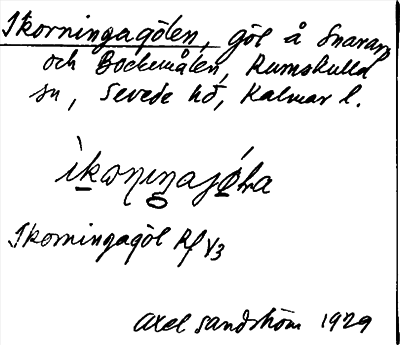 Ikorningagölen, göl å Snararp
och Bockemålen, Rumskulla
sn, Sevede hd, Kalmar l.
Ikorningagöl Rf V3
Axel Sandström 1929